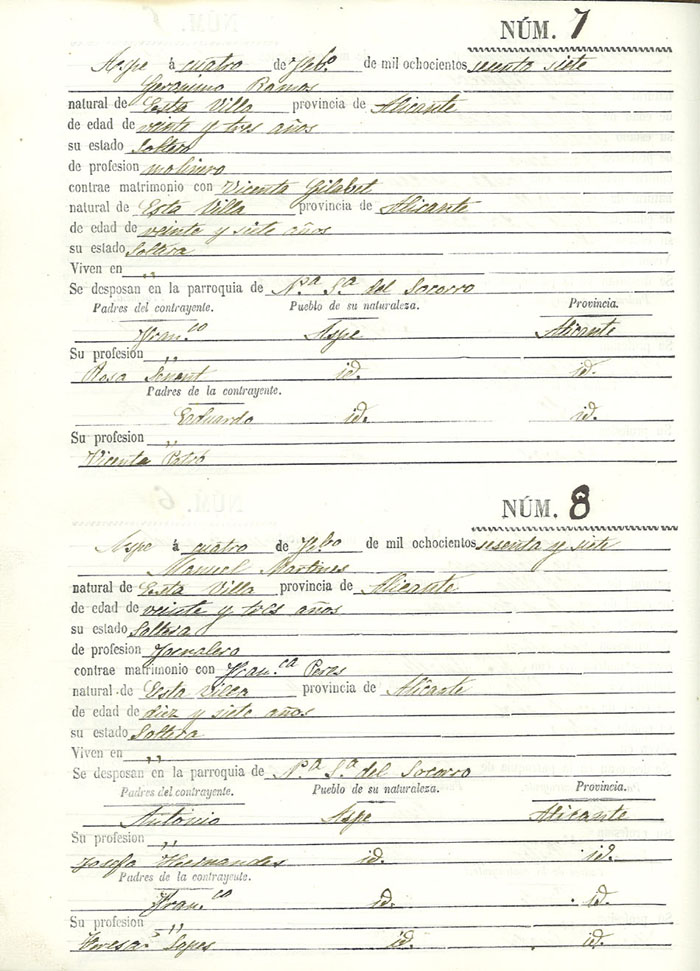 NÚM. 7
Aspe á cuatro de Feb.º de mil ochocientos sesenta siete
Geronimo Ramos
natural de Esta Villa provincia de Alicante
de edad de veinte y tres años
su estado Soltero
de profesion molinero
contrae matrimonio con Vicenta Gilabert
natural de Esta Villa provincia de Alicante
de edad de veinte y siete años
su estado Soltera
Viven en ,,
Se desposan en la parroquia de N.ª S.ª del Socorro
Padres del contrayente. Pueblo de su naturaleza. Provincia.
Fran.co Aspe Alicante
Su profesion ,,
Rosa id. id.
Padres de la contrayente.
Eduardo id. id.
Su profesion ,,
Vicenta
NÚM. 8
Aspe á cuatro de Feb.º de mil ochocientos sesenta y siete
Manuel Martines
natural de Esta Villa provincia de Alicante
de edad de veinte y tres años
su estado Soltero
de profesion Jornalero
contrae matrimonio con Fran.ca Peres
natural de Esta Villa provincia de Alicante
de edad de diez y siete años
su estado Soltera
Viven en ,,
Se desposan en la parroquia de N.ª S.ª del Socorro
Padres del contrayente. Pueblo de su naturaleza. Provincia.
Antonio Aspe Alicante
Su profesion ,,
Josefa Hernandes id. id.
Padres de la contrayente.
Fran.co id. id.
Su profesion ,,
Teresa Lopes id. id.